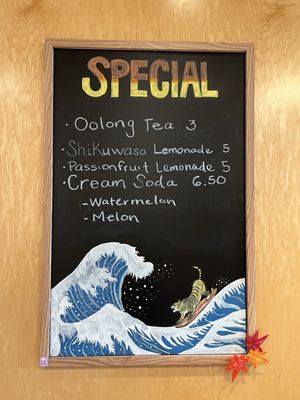 SPECIAL
· Oolong Tea 3
· Shikuwasa Lemonade 5
· Passionfruit Lemonade 5
· Cream Soda 6.50
- Watermelon
- Melon